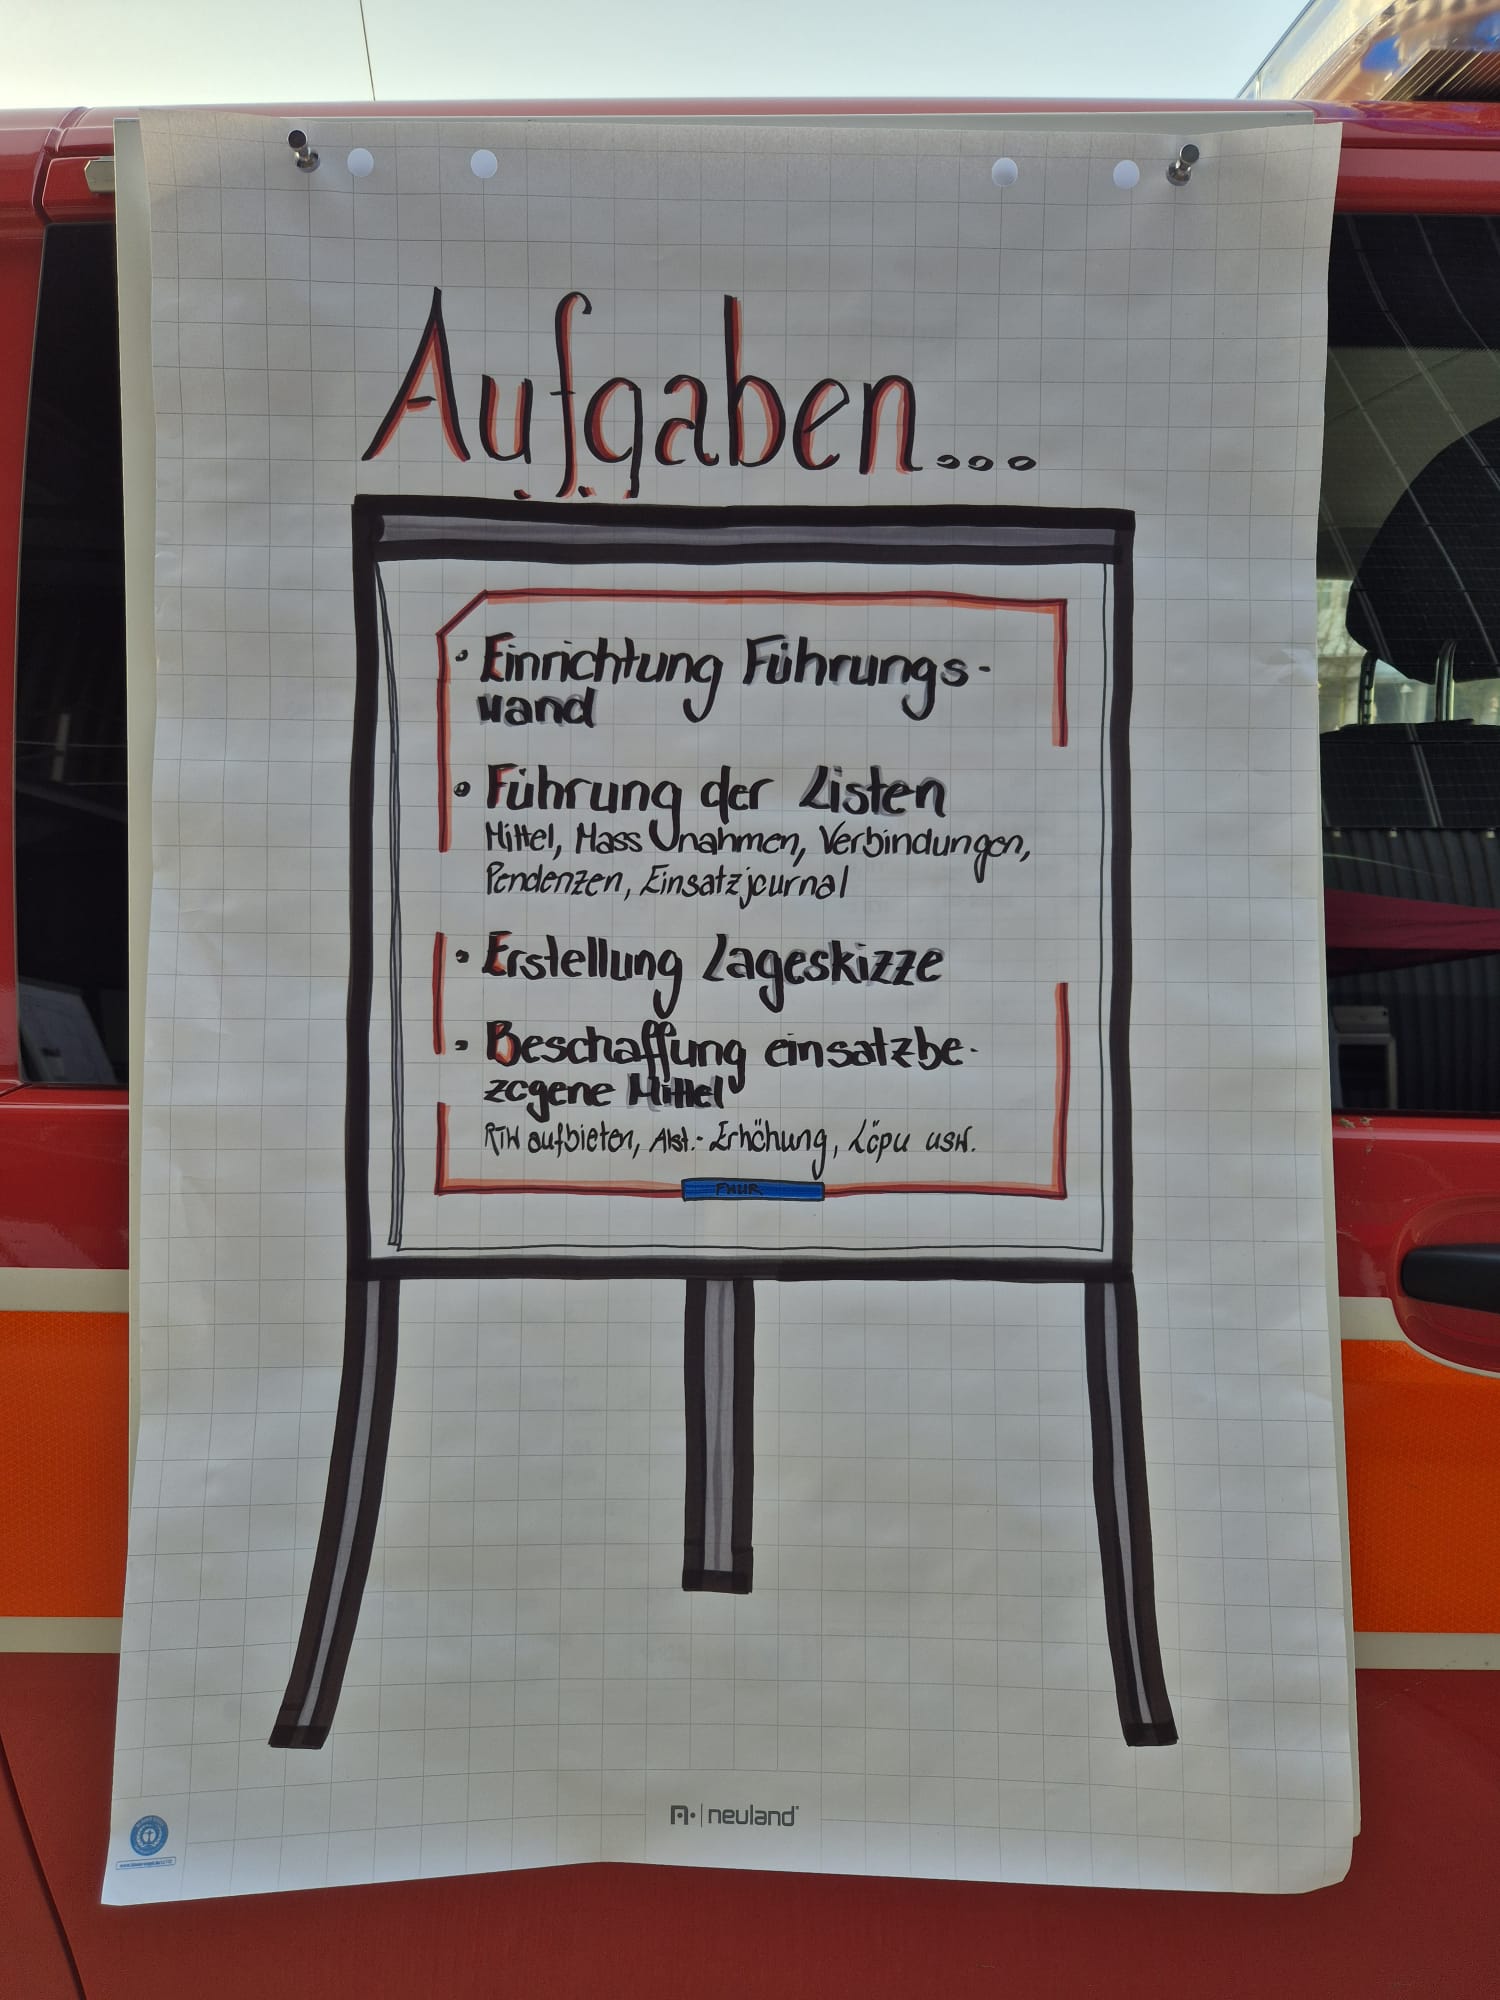 Aufgaben...
• Einrichtung Führungs-
wand
• Führung der Listen
Mittel, Massnahmen, Verbindungen,
Pendenzen, Einsatzjournal
• Erstellung Lageskizze
• Beschaffung einsatzbe-
zogene Mittel
RTW aufbieten, Alst.- Erhöhung, Löpu usw.
FWUR
neuland